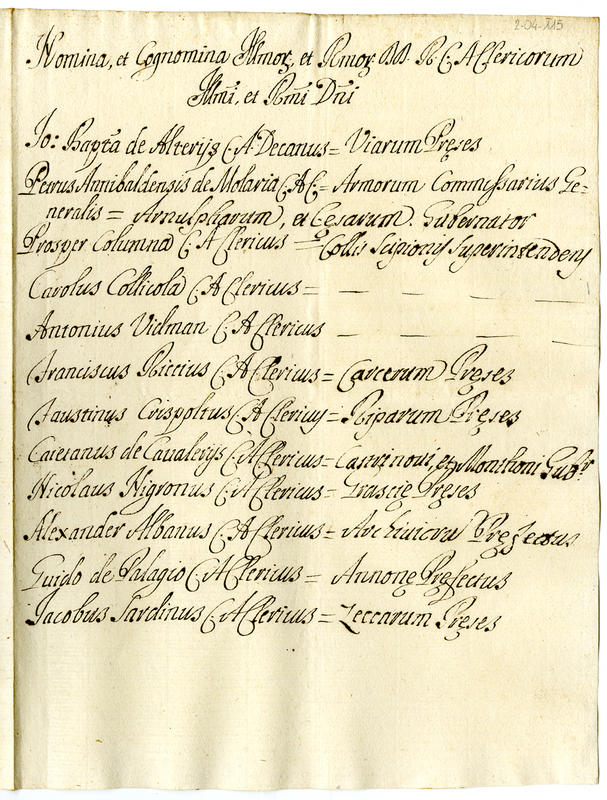 2-04-115
Nomina, et Cognomina Illmoꝝ, et Rmoꝝ DD. R. C. A Clericorum
Illmi, et Rmi Dni
Io: Bapta de Alterijs C. A Decanus = Viarum Pręses
Petrus Annibaldensis de Molaria C. A C. = Armorum Commissarius Ge=
neralis = Arnulpharum, et Cesarum. Gubernator
Prosper Columna C. A Clericus = Collis Scipionis Superintendens
Carolus Collicola C. A Clericus = — — — —
Antonius Vidman C. A Clericus — — — —
Franciscus Riccius C. A Clericus = Carcerum Pręses
Faustinus Crispoltus C. A Clericus = Riparum Pręses
Caietanus de Caualerijs C. A Clericus = Castrinoui, et Montisoni Gubr
Nicolaus Nigronus C. A Clericus = Grascię Pręses
Alexander Albanus C. A Clericus = Archiuioru Pręfectus
Guido de Palagio C. A Clericus = Annonę Pręfectus
Jacobus Sardinus C. A Clericus = Zeccarum Pręses